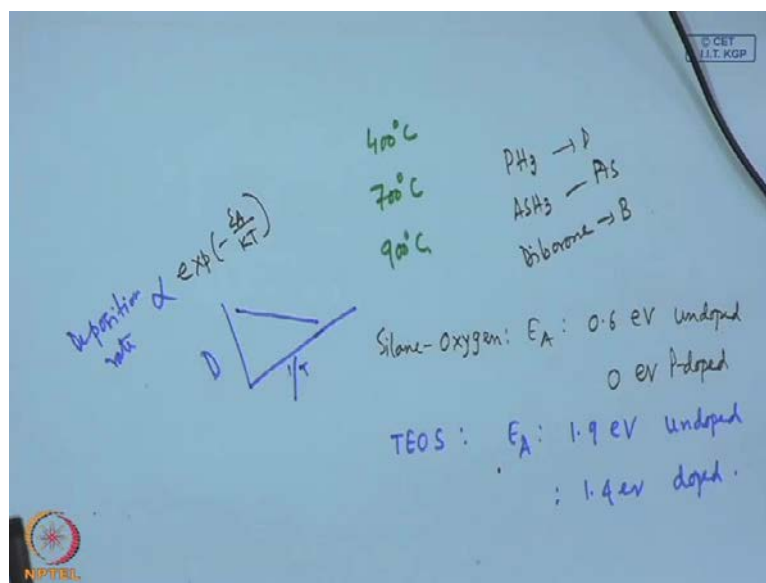 © CET
I.I.T. KGP
400°C
700°C
900°C
PH3 → P
ASH3 — AS
Diborone → B
Deposition rate ∝ exp(-EA/KT)
D
1/T
Silane-Oxygen: EA: 0.6 eV undoped
0 eV P-doped
TEOS: EA: 1.9 eV Undoped
: 1.4 eV doped.
NPTEL